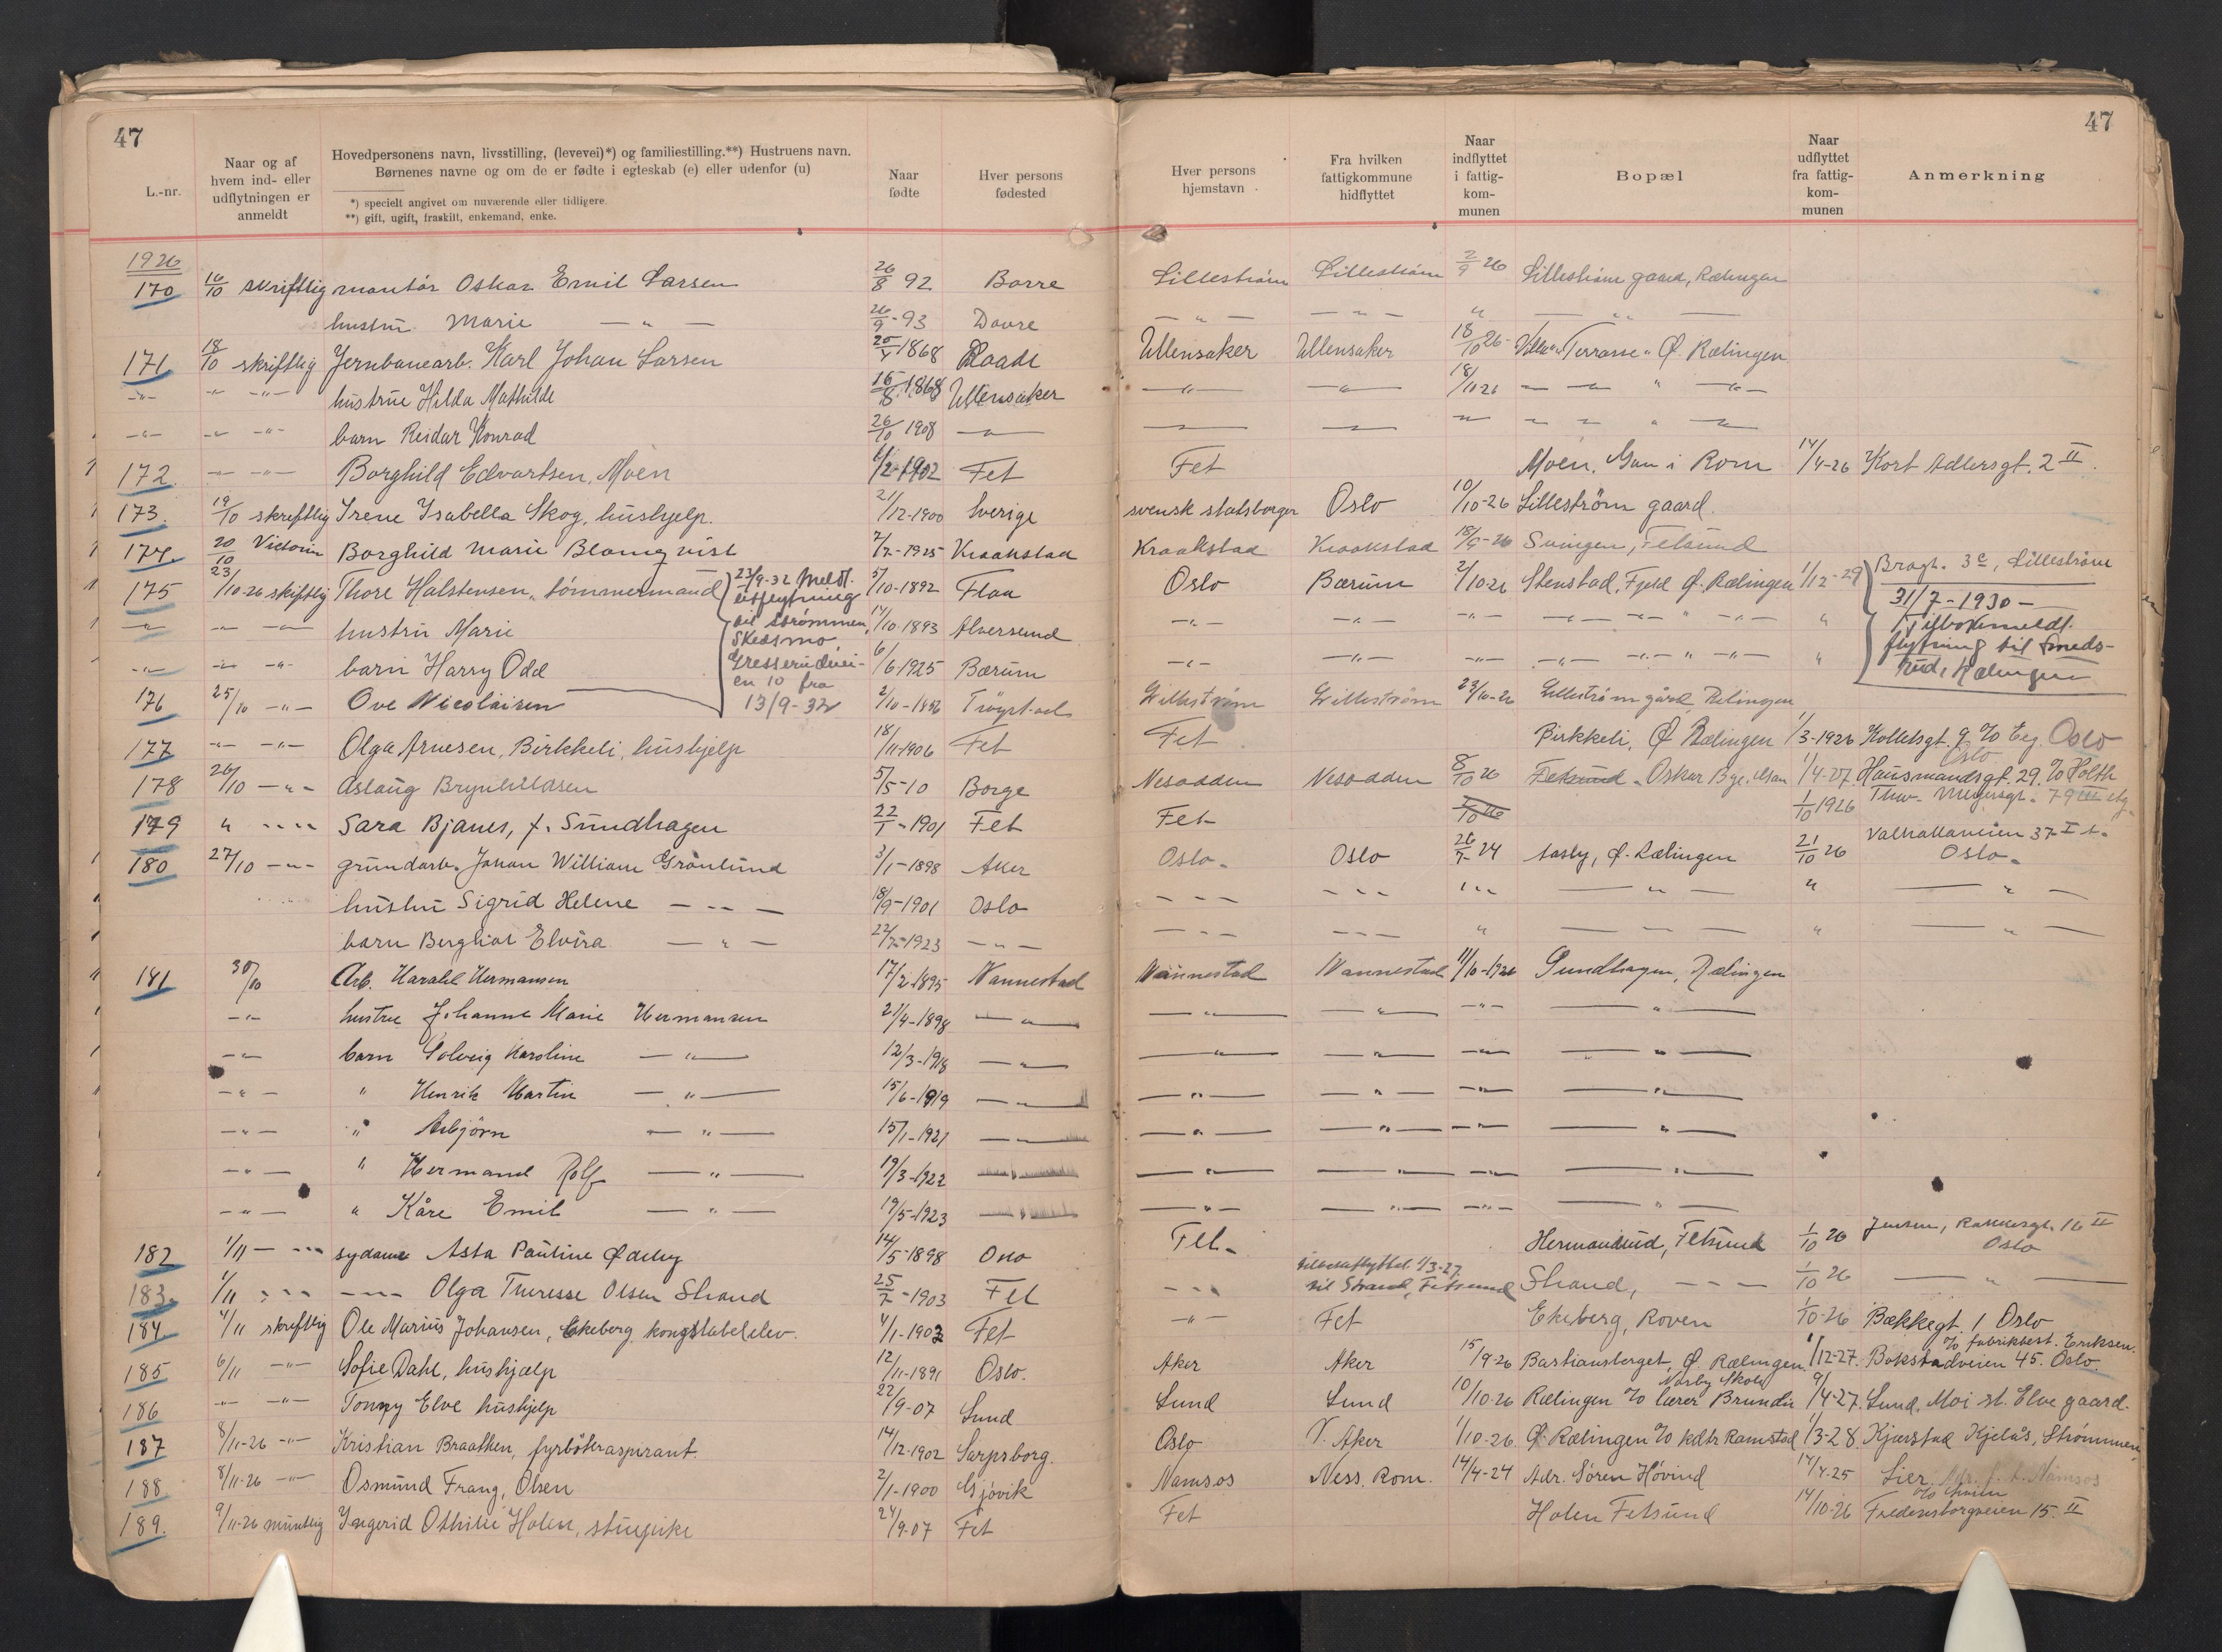 47
47
L.-nr.
Naar og af hvem ind- eller udflytningen er anmeldt
Hovedpersonens navn, livsstilling, (levevei)*) og familiestilling.**) Hustruens navn. Børnenes navne og om de er fødte i egteskab (e) eller udenfor (u)
*) specielt angivet om nuværende eller tidligere.
**) gift, ugift, fraskilt, enkemand, enke.
Naar fødte
Hver persons fødested
Hver persons hjemstavn
Fra hvilken fattigkommune hidflyttet
Naar indflyttet i fattig-kom-munen
Bopæl
Naar udflyttet fra fattig-kom-munen
Anmerkning
1926
170 16/10 skriftlig montør Oskar Emil Larsen 26/8 92 Borre Lillestrøm Lillestrøm 2/9 26 Lillestrøm gaard, Rælingen
hustru Marie — " — 26/9-93 Dovre — " — — " — " — " —
171 18/10 skriftlig Jernbanearb. Karl Johan Larsen 1868 Raade Ullensaker Ullensaker 18/10 26 Villa "Terrasse" Ø. Rælingen
-"- -"- -"- hustrue Hilda Mathilde 15/8 1868 Ullensaker -"- -"- 18/11 26 - " - " -"-
-"- -"- -"- barn Reidar Konrad 26/10 1908 -"- -"- -"- -"- - " - " -"-
172 -"- -"- Borghild Edvartsen, Moen 1/2-1902 Fet Fet Moen, Gan i Rom 14/4-26 Kort Adlersgt. 2 II
173. 19/10 skriftlig Irene Isabella Skog, hushjelp. 21/12-1900 Sverige svensk statsborger Oslo 10/10-26 Lillestrøm gaard.
174. 20/10 Victorin Borghild Marie Blomqvist 7/7-1925 Kraakstad Kraakstad Kraakstad 18/9-26 Svingen, Fetsund
175 23/10-26 skriftlig Thore Halstensen, tømmermand 5/10-1892 Flaa Oslo Bærum 2/10-26 Stenstad, Fjeld Ø. Rælingen 1/12-29 Bragt. 3c, Lillestrøm
-"- -"- -"- hustru Marie 14/10-1893 Alversund -"- -"- -"- -"- -"- " -"- "
-"- -"- -"- barn Harry Odd 6/6-1925 Bærum -"- -"- -"- -"- -"- " -"- "
23/9-32 Meldt utflytning til Strømmen, Skedsmo, Gresserudvei-en 10 fra 13/9-32
31/7-1930 - Tilbakemeldt. flytning til Smeds-rud, Rælingen
176 25/10 -"- Ove Nicolaisen 2/10-1856 Trøgstad Lillestrøm Lillestrøm 23/10-26 Lillestrøm gård, Relingen
177 -"- -"- Olga Arnesen, Birkkeli, hushjelp 18/11-1906 Fet Fet Birkkeli, Ø Rælingen 1/3-1926 Holtetsgt. 9 % Eeg. Oslo
178 26/10 -"- Aslaug Brynhildsen 5/5-10 Borge Nesodden Nesodden 8/10 26 Fetsund - Oskar Bye. 1/4-27. Hausmandsgt. 29. % Holth Oslo
179 " -"- Sara Bjanes, f. Sundhagen 22/1-1901 Fet Fet 1/10 26 1/10 1926 Thv. Meyersgt. 79 III
180 27/10 -"- grundarb. Johan William Grønlund 3/1-1898 Aker Oslo. Oslo 26/7-24 Aasby, Ø. Rælingen 21/10 26 Valhallaveien 37 I Oslo.
hustru Sigrid Helene - " - 18/9-1901 Oslo - " - - " - " " - " - " - " -
barn Bergliot Elvira - " - 22/7-1923 - " - - " - - " - " - " - " - " -
181 30/10 Arb. Harald Hermansen 17/2-1895 Nannestad Nannestad Nannestad 11/10-1926 Sundhagen, Rælingen
-"- hustru Johanne Marie Hermansen 21/4-1898 -"- -"- -"- -"- -"-
-"- barn Solveig Karoline -"- 12/3-1918 -"- -"- -"- -"- -"-
-"- " Henrik Martin -"- 15/6-1919 -"- -"- -"- -"- -"-
-"- " Asbjørn -"- 15/1-1921 -"- -"- -"- -"- -"-
-"- " Hermand Rolf -"- 19/3-1922 -"- -"- -"- -"- -"-
-"- " Kåre Emil -"- 19/5-1923 -"- -"- -"- -"- -"-
182 1/11 -"- sydame Asta Pauline Ødeby 14/5-1898 Oslo Fet. Hermandsrud, Fetsund 1/10 26 Jensen, Rakkersgt. 16 II Oslo
183. 1/11 -"- -"- Olga Theresse Olsen Strand 25/7-1903 Fet -"- tilbakeflyttet 1/3-27. til Strand, Fetsund Strand, -"- 1/10 26 -"-
184. 4/11 skriftlig Ole Marius Johansen, Ekeberg konstabelelev. 4/1-1903 Fet -"- Fet Ekeberg, Roven 1/10-26 Bækkegt. 1 Oslo
185 6/11 -"- Sofie Dahl, hushjælp 12/11-1891 Oslo. Aker Aker 15/9-26 Bastiansberget, Ø. Rælingen 1/12-27. % fabrikbest. Eriksen. Bokstadveien 45. Oslo.
186 -"- -"- Tonny Elve hushjelp 22/9-07 Lund Lund Lund 10/10-26 Rælingen % lærer Brundin Norby Skole 9/4-27. Lund. Moi st. Elve gaard.
187 8/11-26 -"- Kristian Braathen, fyrbøteraspirant. 14/12-1902 Sarpsborg. Oslo V. Aker 1/10-26. Ø. Rælingen % kdtr Ramstad 1/3-28. Kjærstad Kjelås, Strømmen
188 8/11-26 -"- Osmund Frang, Olsen 2/1-1900 Gjøvik Namsos Ness, Rom. 14/4-24 Adr. Søren Høvind 14/4-25 Lier. Namsos
189. 9/11-26 muntlig Ingerid Othilie Holen, stuepike 24/9-07 Fet Fet Holen Fetsund 14/10-26 Fredensborgveien 15. II